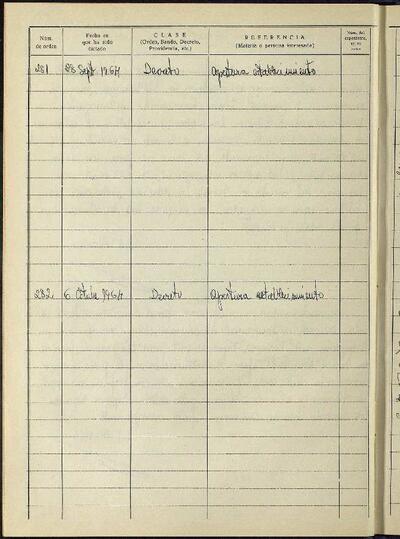 Núm. de orden
Fecha en que ha sido dictado
CLASE
(Orden, Bando, Decreto, Providencia, etc.)
REFERENCIA
(Materia o persona interesada)
Núm. del expediente,
281 28 Sept 1964 Decreto apertura establecimiento
282 6 Octubre 1964 Decreto apertura establecimiento